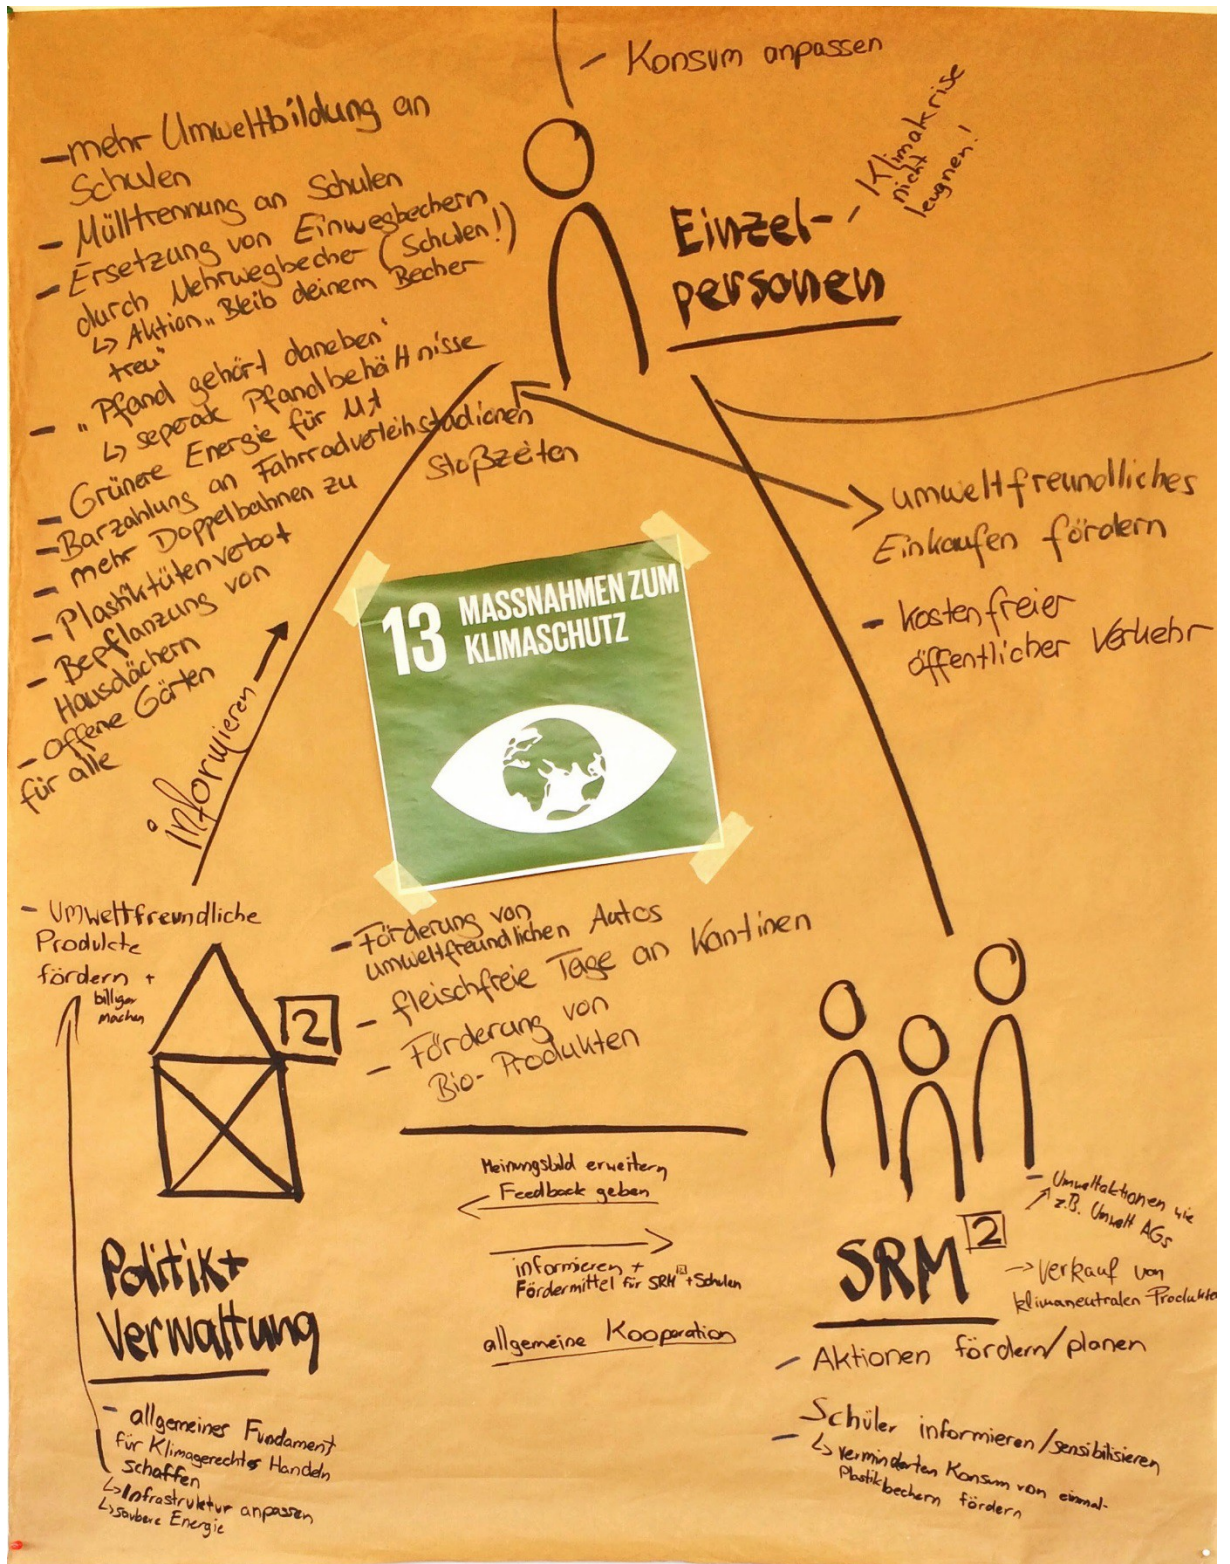 - Konsum anpassen
- mehr Umweltbildung an
Schulen
- Mülltrennung an Schulen
- Ersetzung von Einwegbechern
durch Mehrwegbecher (Schulen!)
↳ Aktion „Bleib deinem Becher
treu"
- „Pfand gehört daneben"
↳ seperate Pfandbehältnisse
- Grünere Energie für
- Barzahlung an Fahrradverleihstadionen
- mehr Doppelbahnen zu
Stoßzeiten
- Plastiktütenverbot
- Bepflanzung von
Hausdächern
- Offene Gärten
für alle
Einzel-
personen
- Klimakrise
nicht
leugnen!
umweltfreundliches
Einkaufen fördern
- kostenfreier
öffentlicher Verkehr
13 MASSNAHMEN ZUM
KLIMASCHUTZ
informieren
- Umweltfreundliche
Produkte
fördern +
billiger
machen
2
- Förderung von
umweltfreundlichen Autos
- fleischfreie Tage an Kantinen
- Förderung von
Bio-Produkten
Meinungsbild erweitern
Feedback geben
informieren +
Fördermittel für SRM 2 + Schulen
allgemeine Kooperation
Politik+
Verwaltung
- allgemeines Fundament
für Klimagerechtes Handeln
schaffen
↳ Infrastruktur anpassen
↳ saubere Energie
- Umweltaktionen wie
z.B. Umwelt AGs
SRM 2
→ Verkauf von
klimaneutralen Produkten
- Aktionen fördern/planen
- Schüler informieren/sensibilisieren
↳ verminderten Konsum von einmal-
Plastikbechern fördern